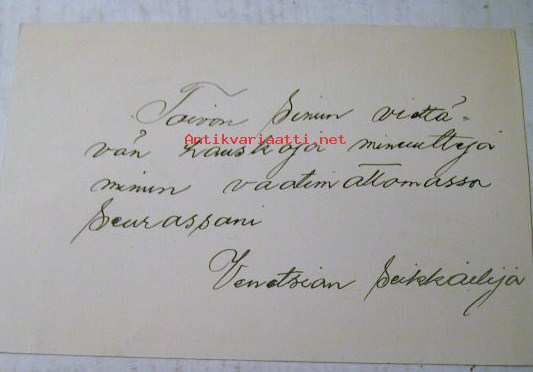 Toivon Sinun viettä-
vän hauskoja minuutteja
minun vaatimattomassa
Seurassani
Venetsian Seikkailija
Antikvariaatti.net